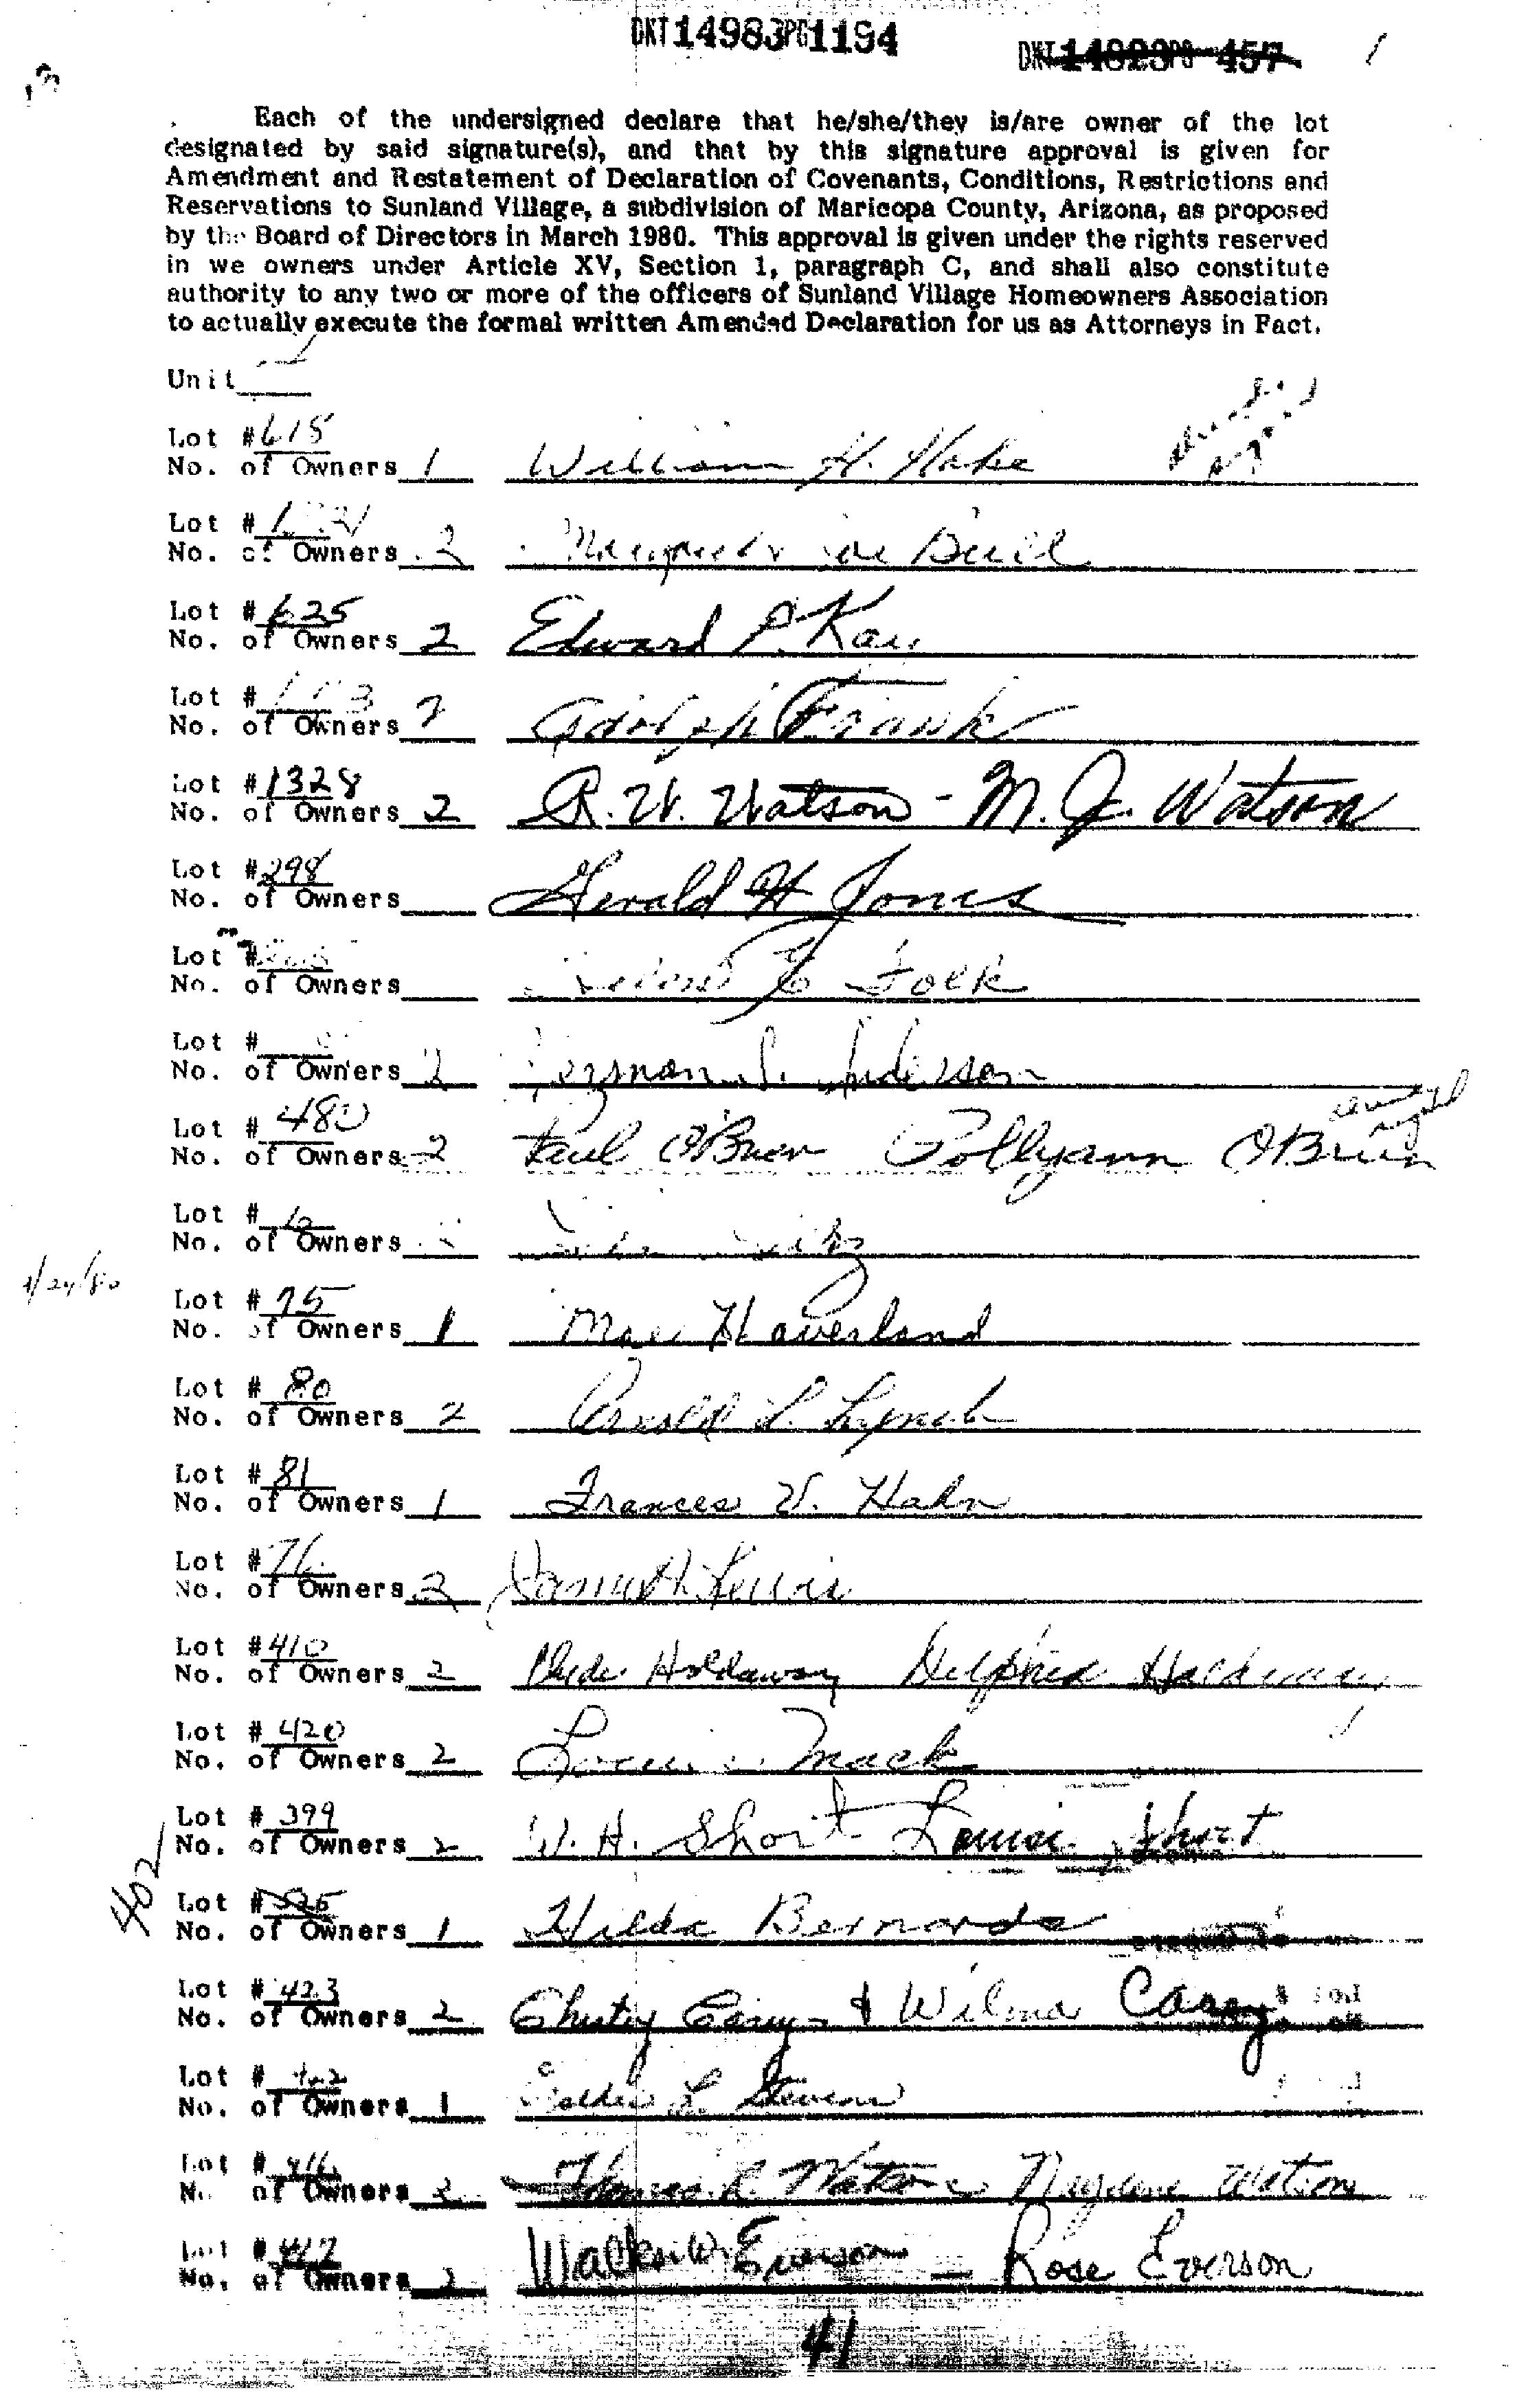 DKT 14983 PG 1194
DKT 14823 PG 457
1
Each of the undersigned declare that he/she/they is/are owner of the lot
designated by said signature(s), and that by this signature approval is given for
Amendment and Restatement of Declaration of Covenants, Conditions, Restrictions and
Reservations to Sunland Village, a subdivision of Maricopa County, Arizona, as proposed
by the Board of Directors in March 1980. This approval is given under the rights reserved
in we owners under Article XV, Section 1, paragraph C, and shall also constitute
authority to any two or more of the officers of Sunland Village Homeowners Association
to actually execute the formal written Amended Declaration for us as Attorneys in Fact.
Unit
Lot #615
No. of Owners 1 William H. Hake
Lot #
No. of Owners 2
Lot #625
No. of Owners 2 Edward P. Kay
Lot #
No. of Owners 2 Adolph Frank
Lot #1328
No. of Owners 2 R. W. Watson - M. J. Watson
Lot #298
No. of Owners Gerald H Jones
Lot #
No. of Owners Folk
Lot #
No. of Owners 2 Anderson
Lot # 480
No. of Owners 2 Paul O'Brien Pollyann O'Brien
Lot #
No. of Owners
4/24/80
Lot # 75
No. of Owners 1 Mae Haverland
Lot # 80
No. of Owners 2 L. Lynch
Lot # 81
No. of Owners 1 Frances V. Hahn
Lot # 76
No. of Owners 2 Lewis
Lot #410
No. of Owners 2 Clyde Holdaway Delpha Holdaway
Lot # 420
No. of Owners 2 Mack
Lot # 399
No. of Owners 2 W. H. Short Louise Short
402
Lot #
No. of Owners 1 Hilda Bernards
Lot # 423
No. of Owners 2 Carey & Wilma Carey
Lot #
No. of Owners 1 L. Stevens
Lot # 416
No. of Owners 2 Thomas R. Watson Watson
Lot # 417
No. of Owners 2 Everson - Rose Everson
41